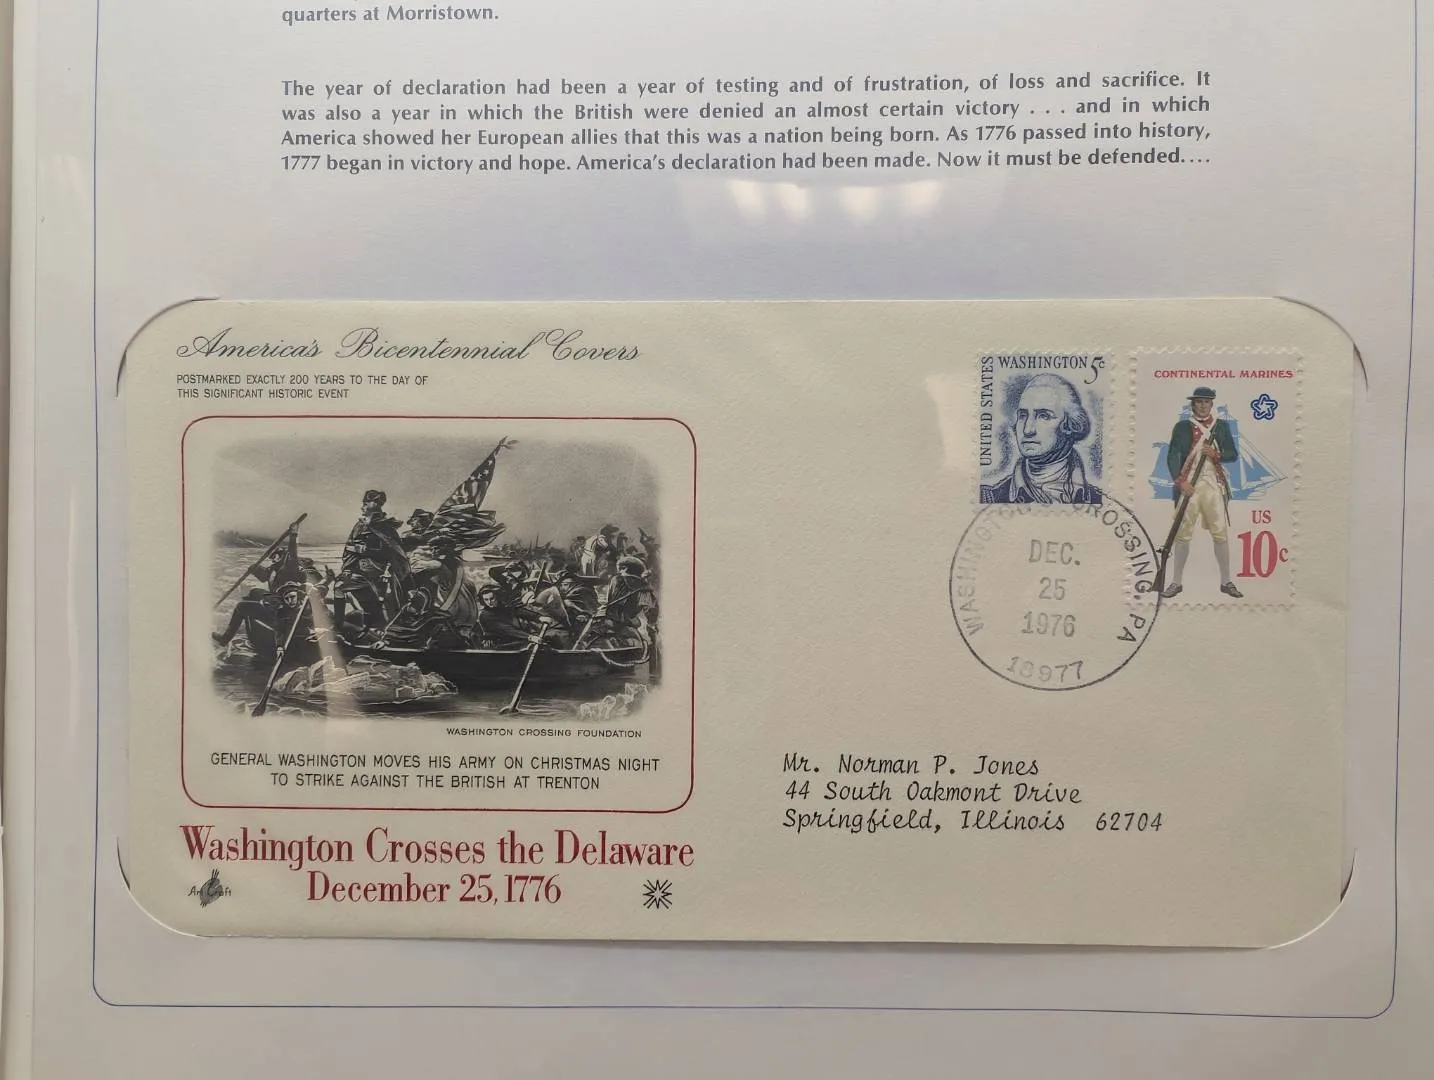 quarters at Morristown.
The year of declaration had been a year of testing and of frustration, of loss and sacrifice. It
was also a year in which the British were denied an almost certain victory . . . and in which
America showed her European allies that this was a nation being born. As 1776 passed into history,
1777 began in victory and hope. America's declaration had been made. Now it must be defended....
America's Bicentennial Covers
POSTMARKED EXACTLY 200 YEARS TO THE DAY OF
THIS SIGNIFICANT HISTORIC EVENT
WASHINGTON CROSSING FOUNDATION
GENERAL WASHINGTON MOVES HIS ARMY ON CHRISTMAS NIGHT
TO STRIKE AGAINST THE BRITISH AT TRENTON
Washington Crosses the Delaware
December 25, 1776
Art Craft
UNITED STATES
WASHINGTON 5c
CONTINENTAL MARINES
US
10c
WASHINGTON CROSSING, PA
DEC.
25
1976
18977
Mr. Norman P. Jones
44 South Oakmont Drive
Springfield, Illinois 62704